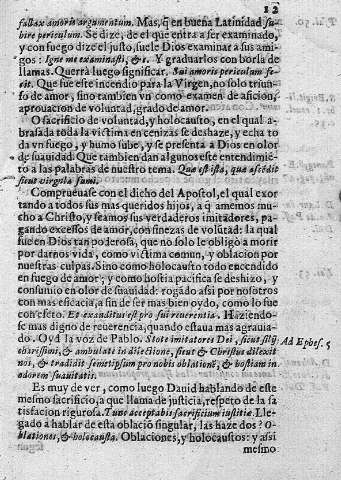 12
fallax amoris argumentum. Mas, q̃ en buena Latinidad su
bire periculum. Se dize, de el que entra a ser examinado,
y con fuego dize el justo, suele Dios examinar a sus ami
gos: Igne me examinasti, &c. Y graduarlos con borla de
llamas. Querrà luego significar. Sui amoris periculum fe
cit. Que fue este incendio para la Virgen, no solo triunfo
de amor, sino tambien vn como examen de aficion,
aprouacion de voluntad, grado de amor.
O sacrificio de voluntad, y holocausto, en el qual a-
brasada toda la victima en cenizas se deshaze, y echa to
da vn fuego, y humo sube, y se presenta a Dios en olor
de suauidad! Que tambien dan algunos este entendimiē
to a las palabras de nuestro tema. Quæ est ista, quæ ascēdit
sicut virgula fumi.
Compruèuase con el dicho del Apostol, el qual exor
tando a todos sus mas queridos hijos, a q̃ amemos mu-
cho a Christo, y seamos sus verdaderos imitadores, pa-
gando excessos de amor, con finezas de volũtad: la qual
fue en Dios tan poderosa, que no solo le obligò a morir
por darnos vida, como victima comun, y oblacion por
nuestras culpas. Sino como holocausto todo encendido
en fuego de amor; y como hostia pacifica se deshizo, y
consumio en olor de suauidad: rogado assi por nosotros
con mas eficacia, a fin de ser mas bien oydo, como lo fue
con efeto. Et exauditus est pro sui reuerentia. Haziendo-
se mas digno de reuerencia, quando estaua mas agrauia-
do. Oyd la voz de Pablo. Stote imitatores Dei, sicut filij
charissimi, & ambulati in dilectione, sicut & Christus dilexit
nos, & tradidit semetipsum pro nobis oblationē, & hostiam in
odorem suauitatis.
Ad Ephes. 5
Es muy de ver, como luego Dauid hablando de este
mesmo sacrificio, a que llama de justicia, respeto de la sa
tisfacion rigurosa. Tunc acceptabis sacrificium iustitiæ. Lle-
gado a hablar de esta oblaciõ singular, las haze dos? O-
blationes, & holocausta. Oblaciones, y holocaustos: y assi
mesmo